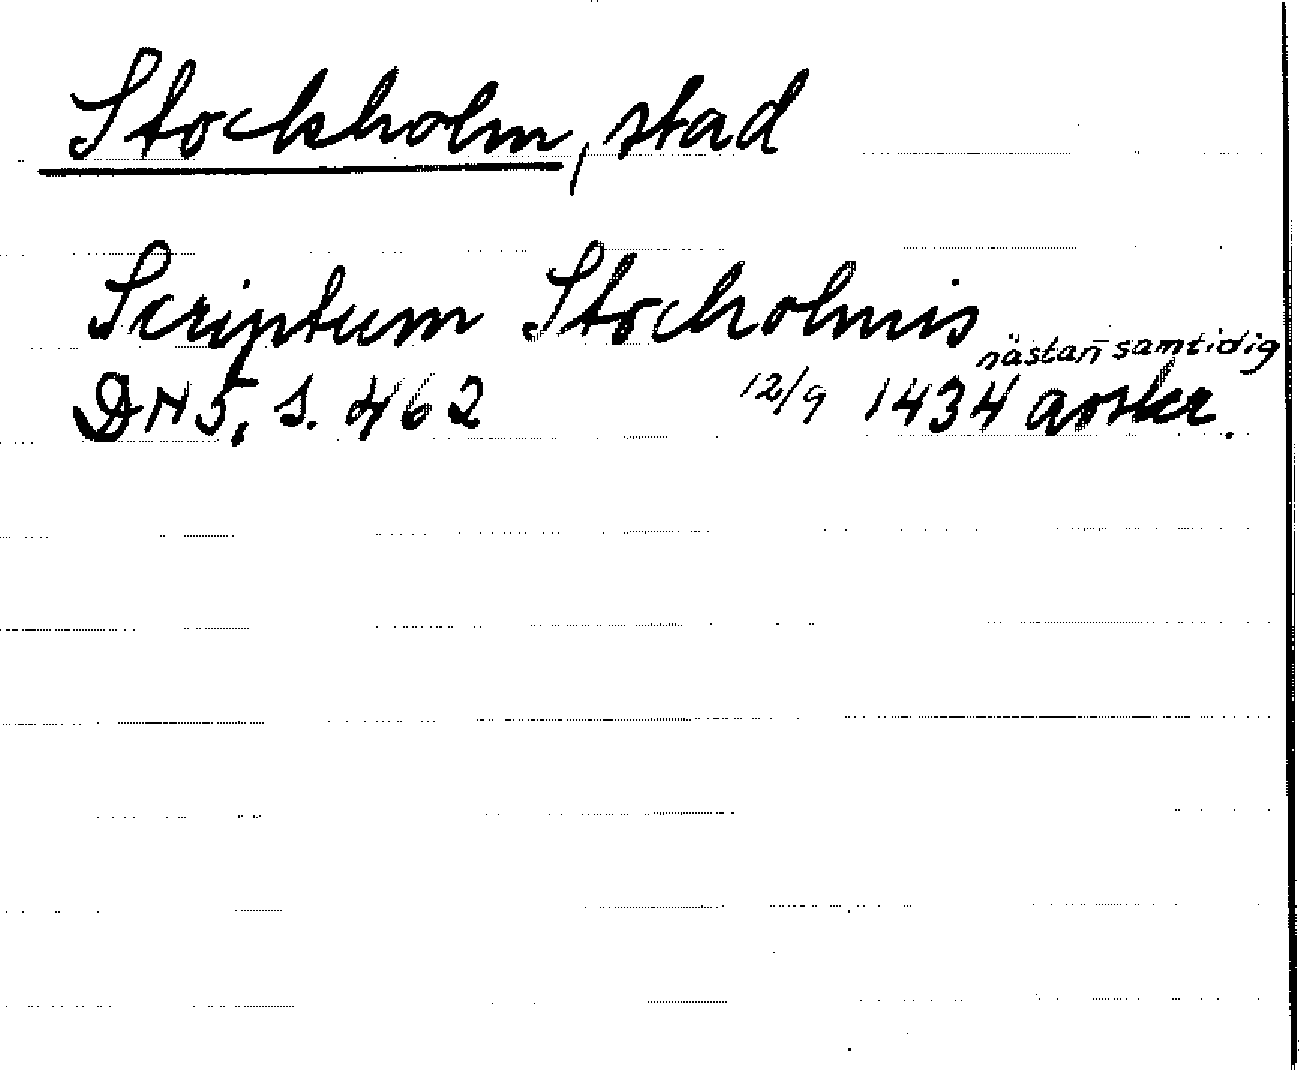 Stockholm, stad
Scriptum Stocholmis
nästan samtidig
DN 5, s. 462 12/9 1434 avskr.